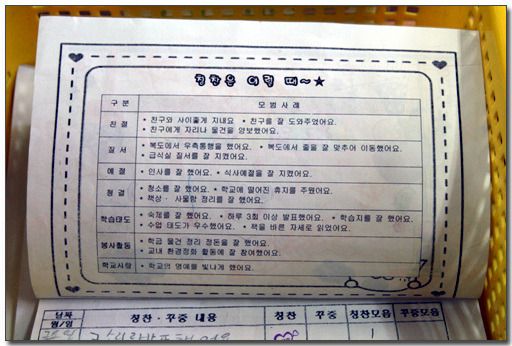 칭찬은 이럴 때~★
구 분 모 범 사 례
친 절 • 친구와 사이좋게 지내요 • 친구를 잘 도와주었어요.
• 친구에게 자리나 물건을 양보했어요.
질 서 • 복도에서 우측통행을 했어요. • 복도에서 줄을 잘 맞추어 이동했어요.
• 급식실 질서를 잘 지켰어요.
예 절 • 인사를 잘 했어요. • 식사예절을 잘 지켰어요.
청 결 • 청소를 잘 했어요. • 학교에 떨어진 휴지를 주웠어요.
• 책상 · 사물함 정리를 잘 했어요.
학습태도 • 숙제를 잘 했어요. • 하루 3회 이상 발표했어요. • 학습지를 잘 했어요.
• 수업 태도가 우수했어요. • 책을 바른 자세로 읽었어요.
봉사활동 • 학급 물건 정리 정돈을 잘 했어요.
• 교내 환경정화 활동에 잘 참여했어요.
학교사랑 • 학교의 명예를 빛나게 했어요.
날짜 칭찬 · 꾸중 내용 칭찬 꾸중 칭찬모음 꾸중모음
월/일
1